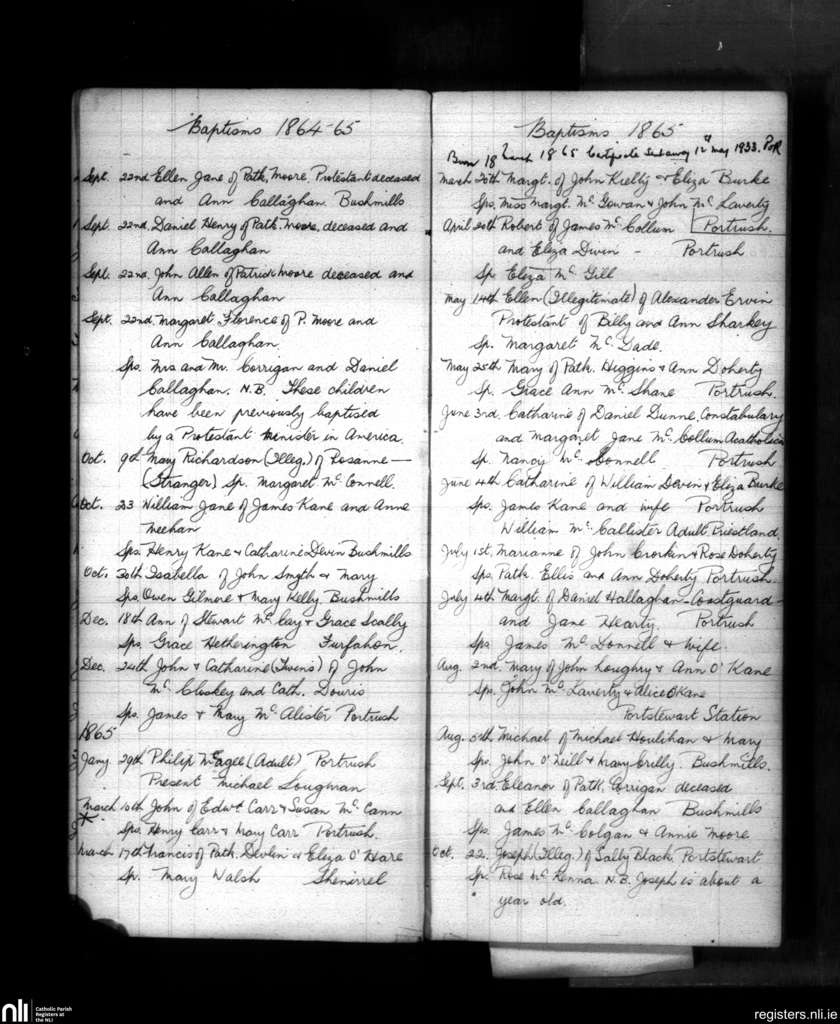 Baptisms 1864-65
Sept. 22nd Ellen Jane of Path. Moore, Protestant deceased
and Ann Callaghan. Bushmills
Sept. 22nd. Daniel Henry of Path. Moore, deceased and
Ann Callaghan
Sept. 22nd. John Allen of Patrick Moore deceased and
Ann Callaghan
Sept. 22nd. Margaret Florence of P. Moore and
Ann Callaghan.
Sps. Mrs and Mr. Corrigan and Daniel
Callaghan. N.B. These children
have been previously baptised
by a Protestant minister in America.
Oct. 9th Mary Richardson (Illeg.) of Rosanne —
(Stranger) Sp. Margaret Mc Connell.
Oct. 23 William Jane of James Kane and Anne
Meehan
Sps. Henry Kane & Catharine Devin Bushmills
Oct. 30th Isabella of John Smyth & Mary
Sps. Owen Gilmore & Mary Kelly. Bushmills
Dec. 18th Ann of Stewart Mc Cay & Grace Scally
Sps. Grace Hetherington
Dec. 24th John & Catharine (Twins) of John
Mc Cluskey and Cath. Douris
Sps. James & Mary Mc Alister Portrush
1865
Jany. 29th Philip (Adult) Portrush
Present Michael Loughran
March 10th John of Edwd. Carr & Susan Mc Cann
* Sps. Henry Carr & Mary Carr Portrush.
March 17th Francis of Path. Devlin & Eliza O' Hare
Sp. Mary Walsh
Baptisms 1865
Born 18 March 1865 Certificate sent away 12th May 1933. PoR
March 26th Margt. of John Kielty & Eliza Burke
Sps. Miss Margt. Mc Gowan & John Mc Laverty
Portrush.
April 20th Robert of James Mc Collum
and Eliza Divin - Portrush
Sp Eliza Mc Gill
May 14th Ellen (Illegitimate) of Alexander Ervin
Protestant of Billy and Ann Sharkey
Sp. Margaret Mc Dade.
May 25th Mary of Path. Higgins & Ann Doherty
Sp. Grace Ann Mc Shane Portrush.
June 3rd. Catharine of Daniel Dunne, Constabulary
and Margaret Jane Mc Collum Acatholica
Sp. Nancy Mc Donnell Portrush
June 4th Catharine of William Devin & Eliza Burke
Sps. James Kane and wife Portrush
William Mc Callister Adult Priestland,
July 1st, Marianne of John & Rose Doherty
Sps. Path. Ellis and Ann Doherty Portrush.
July 4th Margt. of Daniel Hallaghan - Coastguard -
and Jane Hearty. Portrush
Sps. James Mc Donnell & wife.
Aug. 2nd. Mary of John Loughry & Ann O' Kane
Sps. John Mc Laverty & Alice O'Kane
Portstewart Station
Aug. 5th Michael of Michael Houlihan & Mary
Sps. John O'Neill & Mary Crilly. Bushmills.
Sept. 3rd. Eleanor of Path. Corrigan deceased
and Ellen Callaghan Bushmills
Sps. James Mc Colgan & Annie Moore
Oct. 22. Joseph (Illeg.) of Sally Black, Portstewart
Sp. Rose Mc Kenna. N.B. Joseph is about a
year old.
nli
Catholic Parish
Registers at
the NLI
registers.nli.ie